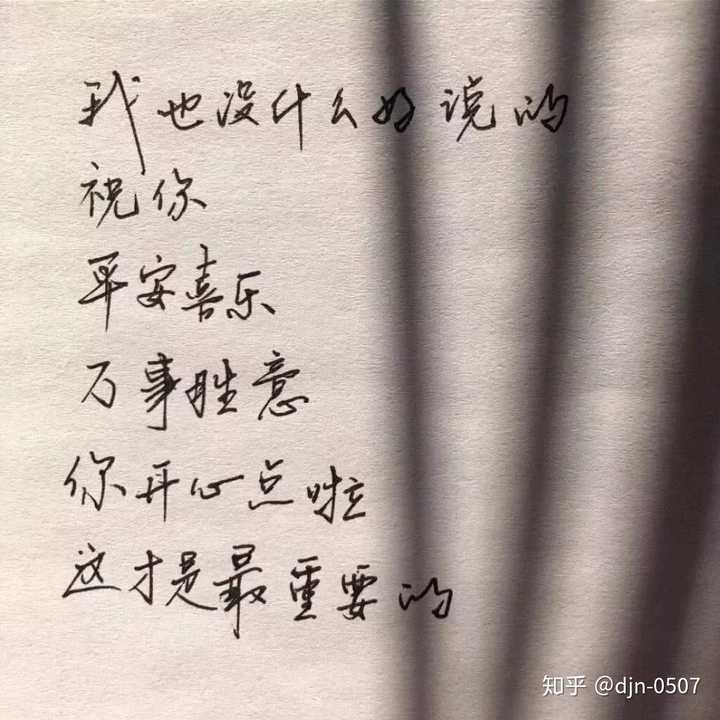 我也没什么好说的
祝你
平安喜乐
万事胜意
你开心点啦
这才是最重要的
知乎 @djn-0507